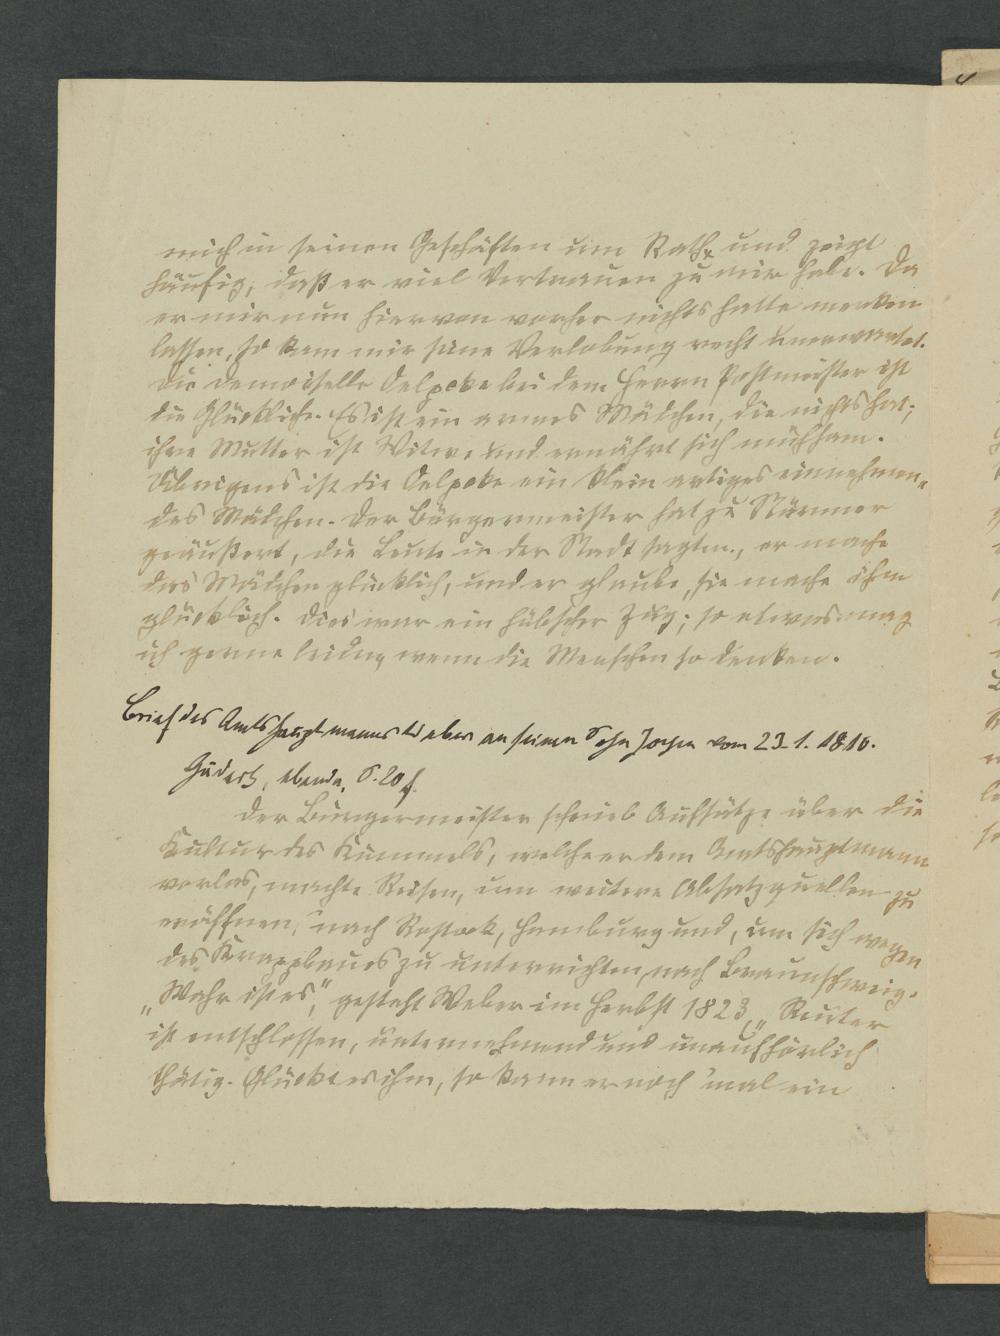 mich in seinen Geschäften um Rath, und zeigt
häufig, daß er viel Vertrauen zu mir habe. Da
er mir nun hiervon vorher nichts hatte merken
lassen, so kam mir seine Verlobung recht unerwartet.
Die Demoiselle Oelpcke bei dem Herrn Postmeister ist
die Glückliche. Es ist ein armes Mädchen, die nichts hat;
ihre Mutter ist Witwe und ernährt sich mühsam.
Übrigens ist die Oelpcke ein klein artiges einnehmen-
des Mädchen. Der Bürgermeister hat zu Stürmer
geäußert, die Leute in der Stadt sagten, er mache
das Mädchen glücklich, und er glaube, sie mache ihn
glücklich. Dies war ein hübscher Zug; so etwas mag
ich gerne leiden, wenn die Menschen so denken.
Brief des Amtshauptmanns Weber an seinen Sohn vom 23.1.1810.
Gädertz, ebenda, S. 20 f.
Der Bürgermeister schrieb Aufsätze über die
Kultur des Kümmels, welche er dem Amtshauptmann
vorlas, machte Reisen, um weitere Absatzquellen zu
eröffnen, nach Rostock, Hamburg und, um sich wegen
des Krappbaues zu unterrichten, nach Braunschweig.
„Wahr ist es", gesteht Weber im Herbst 1823, „Reuter
ist entschlossen, unternehmend und unaufhörlich
thätig. Glückt es ihm, so kann er noch 'mal ein